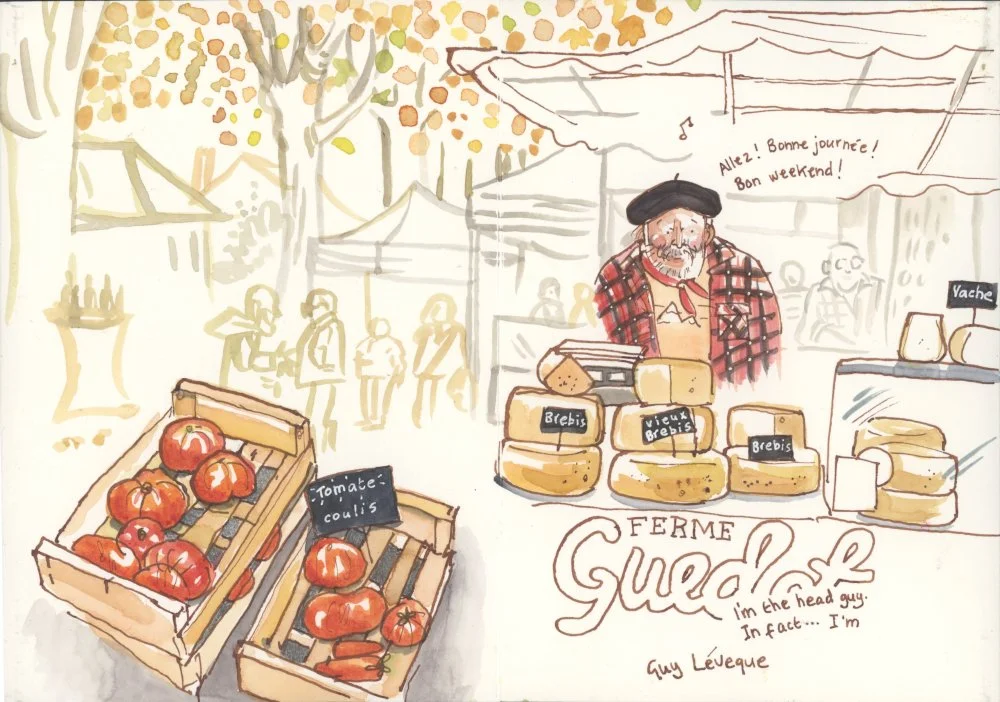 Allez! Bonne journée!
Bon weekend!
Vache
Brebis
vieux
Brebis
Brebis
Tomate
coulis
FERME
I'm the head guy.
In fact... I'm
Guy Léveque